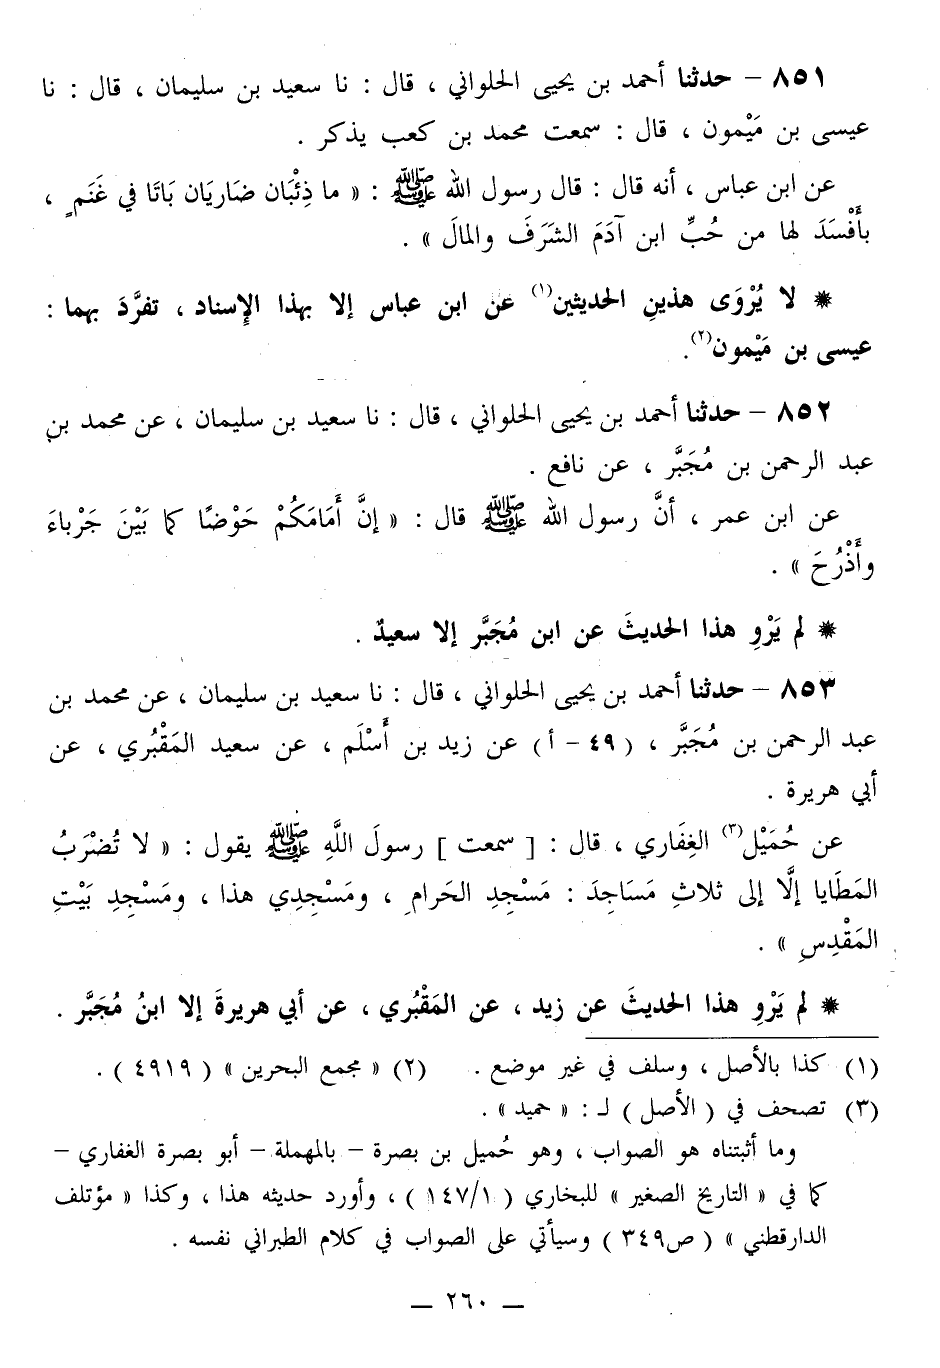 ٨٥١ – حدثنا أحمد بن يحيى الحلواني ، قال : نا سعيد بن سليمان ، قال : نا
عيسى بن مَيْمون ، قال : سمعت محمد بن كعب يذكر .
عن ابن عباس ، أنه قال : قال رسول الله ﷺ : « ما ذِئْبَان ضَاريَان بَاتَا في غَنَمٍ ،
بأَفْسَدَ لها من حُبِّ ابن آدَمَ الشَرَفَ والمالَ » .
* لا يُرْوَى هذينِ الحديثين(١) عن ابن عباس إلا بهذا الإِسناد ، تفرَّدَ بهما :
عيسى بن مَيْمون(٢).
٨٥٢ – حدثنا أحمد بن يحيى الحلواني ، قال : نا سعيد بن سليمان ، عن محمد بن
عبد الرحمن بن مُجَبَّر ، عن نافع .
عن ابن عمر ، أنَّ رسول الله ﷺ قال : « إنَّ أَمَامَكُمْ حَوْضًا كما بَيْنَ جَرْباءَ
وأَذْرُحَ » .
* لم يَرْوِ هذا الحديثَ عن ابن مُجَبَّر إلا سعيدٌ .
٨٥٣ – حدثنا أحمد بن يحيى الحلواني ، قال : نا سعيد بن سليمان ، عن محمد بن
عبد الرحمن بن مُجَبَّر ، ( ٤٩ – أ ) عن زيد بن أَسْلَم ، عن سعيد المَقْبُري ، عن
أبي هريرة .
عن حُمَيْل(٣) الغِفَاري ، قال : [ سمعت ] رسولَ اللَّهِ ﷺ يقول : « لا تُضْرَبُ
المَطَايا إلَّا إلى ثلاثِ مَسَاجِدَ : مَسْجِدِ الحَرامِ ، ومَسْجِدِي هذا ، ومَسْجِدِ بَيْتِ
المَقْدِسِ » .
* لم يَرْوِ هذا الحديثَ عن زيد ، عن المَقْبُري ، عن أبي هريرةَ إلا ابنُ مُجَبَّر .
(١) كذا بالأصل ، وسلف في غير موضع . (٢) « مجمع البحرين » ( ٤٩١٩ ) .
(٣) تصحف في ( الأصل ) لـ : « حميد » .
وما أثبتناه هو الصواب ، وهو حُميل بن بصرة – بالمهملة – أبو بصرة الغفاري –
كما في « التاريخ الصغير » للبخاري ( ١٤٧/١ ) ، وأورد حديثه هذا ، وكذا « مؤتلف
الدارقطني » ( ص٣٤٩ ) وسيأتي على الصواب في كلام الطبراني نفسه .
— ٢٦٠ —